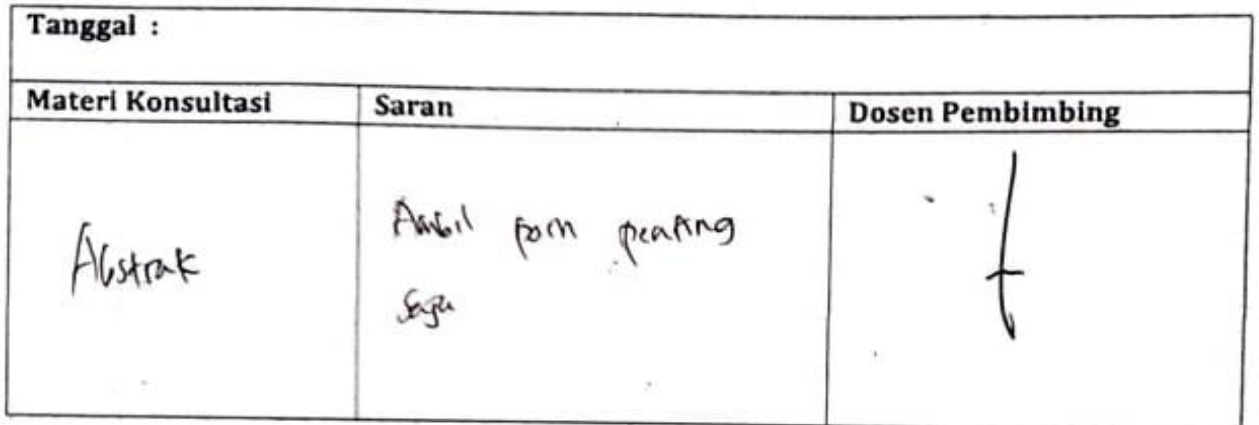 Tanggal :
Materi Konsultasi Saran Dosen Pembimbing
Abstrak
Ambil poin penting
saja